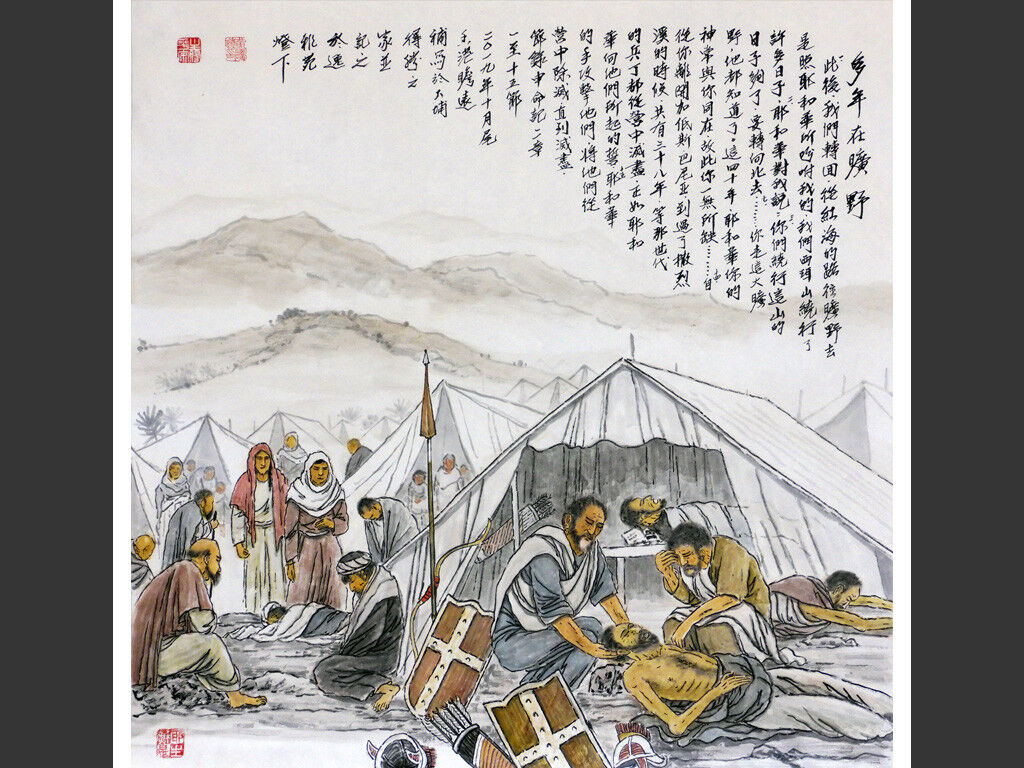 多年在曠野
此後,我們轉回,從紅海的路往曠野去
是照耶和華所吩咐我的,我們西珥山繞行了
許多日子,耶和華對我說,你們繞行這山的
日子夠了,要轉向北去……你走這大曠
野,他都知道了。這四十年,耶和華你的
神常與你同在故此你一無所缺……自
從你離開加低斯巴尼亞到過了撒烈
溪的時候,共有三十八年,等那世代
的兵丁都從營中滅盡,正如耶和
華向他們所起的誓,耶和華
的手攻擊他們,將他們從
營中除滅直到滅盡.
節錄申命記二章
一至十五節
二〇一九年十月尾
港瞻遠
補寫於大埔
得勝之
家並
記之
於逸
雅苑
燈下